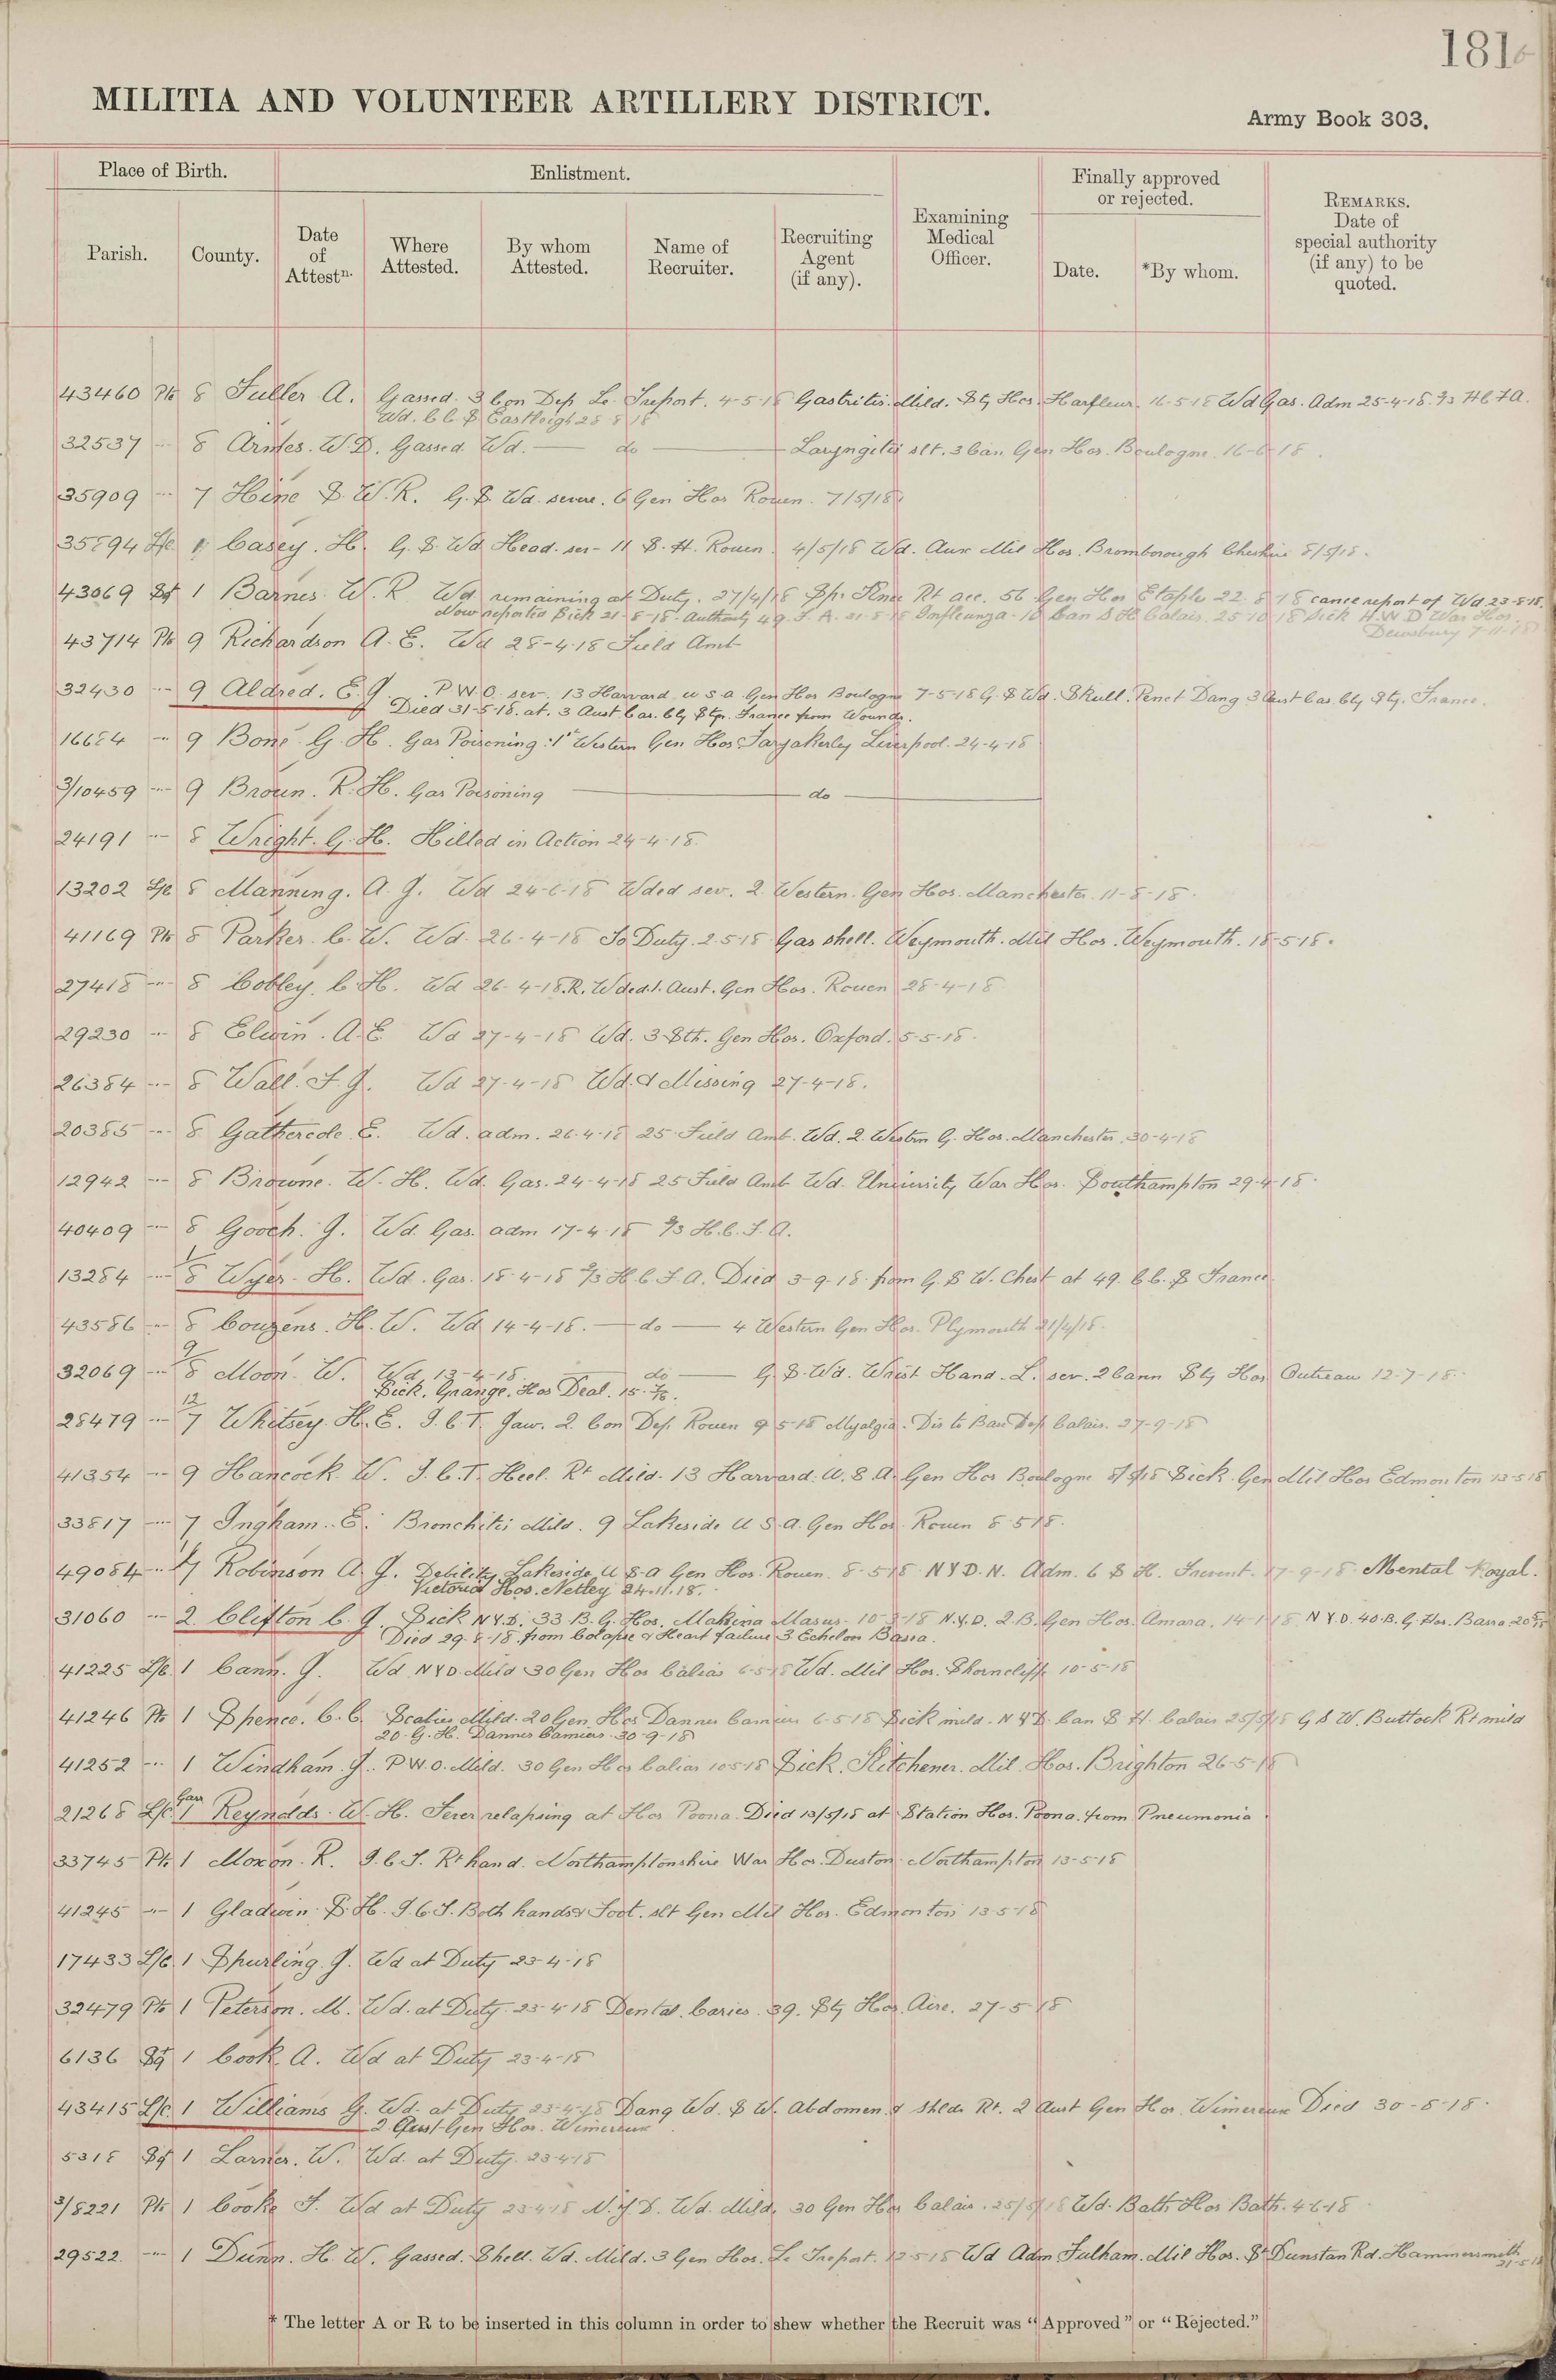 181
MILITIA AND VOLUNTEER ARTILLERY DISTRICT.
Army Book 303.
Place of Birth.
Enlistment.
Finally approved or rejected.
Parish.
County.
Date of Attestn.
Where Attested.
By whom Attested.
Name of Recruiter.
Recruiting Agent (if any).
Examining Medical Officer.
Date.
*By whom.
REMARKS. Date of special authority (if any) to be quoted.
43460 Pte 8 Fuller A. Gassed. 3 Con Dep Le Treport. 4-5-18 Gastritis. Mild. Sty Hos. Harfleur. 16-5-18 Wd Gas. Adm 25-4-18. 2/3 H.C. F.A.
Wd. C.C.S. Eastleigh 28 8 18
32537 -"- 8 Armes. W.D. Gassed. Wd. — do — Laryngitis slt. 3 Can Gen Hos. Boulogne. 16-6-18.
35909 -"- 7 Hine S. W. R. G.S. Wd. severe. 6 Gen Hos Rouen. 7/5/18
35894 L/c 1 Casey. H. G.S. Wd Head. sev- 11 S.H. Rouen. 4/5/18 Wd. Aux Mil Hos. Bromborough Cheshire 8/5/18.
43069 Sgt 1 Barnes. W. R Wd remaining at Duty. 27/4/18 Spr Knee Rt acc. 56 Gen Hos Etaples 22-8-18 cance report of Wd. 23-8-18.
Now reported Sick 21-8-18. Authority 49. F.A. 31-8-18 Influenza. 10 Can S H Calais. 25 10 18 Sick H.W.D War Hos.
Dewsbury 7-11-18
43714 Pte 9 Richardson A. E. Wd 28-4-18 Field Amb
32430 -"- 9 Aldred. E. J. P.W.O. sev. 13 Harvard U S A Gen Hos Boulogne 7-5-18 G.S. Wd. Skull. Penet Dang 3 Aust Cas. Clg Stg. France.
Died 31-5-18. at. 3 Aust Cas. Clg Stn. France from Wounds.
16684 -"- 9 Bone. G. H. Gas Poisoning: 1st Western Gen Hos Fazakerley Liverpool. 24-4-18
3/10459 -"- 9 Broun. R. H. Gas Poisoning — do —
24191 -"- 8 Wright. G. H. Killed in Action 24-4-18.
13202 L/c 8 Manning. A. J. Wd 24-6-18 Wded sev. 2. Western. Gen Hos. Manchester. 11-8-18.
41169 Pte 8 Parker. C. W. Wd. 26-4-18 To Duty. 2-5-18 Gas shell. Weymouth. Mil Hos. Weymouth. 18-5-18.
27418 -"- 8 Cobley. C. H. Wd 26-4-18. R. Wded. 1. Aust. Gen Hos. Rouen 28-4-18
29230 -"- 8 Elwin. A. E. Wd 27-4-18 Wd. 3 Sth. Gen Hos. Oxford. 5-5-18.
26384 -"- 8 Wall. F. J. Wd 27-4-18 Wd. & Missing 27-4-18.
20385 -"- 8 Gathercole E. Wd. adm. 26-4-18 25 Field Amb. Wd. 2. Westrn G. Hos. Manchester. 30-4-18
12942 -"- 8 Browne. W. H. Wd. Gas. 24-4-18 25 Field Amb Wd. University War Hos. Southampton 29-4-18.
40409 -"- 8 Gooch. J. Wd. Gas. adm 17-4-18 2/3 H.C. F. A.
13284 -"- 1/8 Wyer. H. Wd. Gas. 18-4-18 2/3 H C F A. Died 3-9-18. from G S W. Chest at 49. C.C.S France.
43586 -"- 8 Couzens. H. W. Wd 14-4-18. — do — 4 Western Gen Hos. Plymouth 21/4/18.
32069 -"- 9/8 Moon. W. Wd 13-4-18 — do — G.S. Wd. Wrist Hand. L. sev. 2 Cann Sty Hos Outreau 12-7-18.
Sick. Grange. Hos Deal.
28479 -"- 12/7 Whitsey. H. E. I.C.T. Jaw. 2 Con Dep. Rouen 9 5-18 Myalgia. Dis to Base Dep Calais. 27-9-18
41354 -"- 9 Hancock. W. I.C.T. Heel. Rt Mild. 13 Harvard. U.S.A. Gen Hos Boulogne 5/5/18 Sick. Gen Mil Hos Edmonton 13-5-18
33817 -"- 7 Ingham. E. Bronchitis Mild. 9 Lakeside U S. A. Gen Hos. Rouen 8 5 18.
49084 -"- 1/7 Robinson A. J. Debility Lakeside U S A Gen Hos. Rouen. 8-5-18 N Y D. N. Adm. 6 S H. Frevent. 17-9-18. Mental Royal.
Victoria Hos. Netley 24.11.18.
31060 -"- 2 Clifton C. J. Sick N.Y.D. 33. B.G. Hos. Makina Masus. 10-3-18 N.Y.D. 2.B. Gen Hos. Amara. 14-1-18 N.Y.D. 40.B.G. Hos. Basra.
Died 29-8-18. from Colapse & Heart failure 3. Echelon Basra.
41225 L/c. 1 Cann. J. Wd. NYD. Mild 30 Gen Hos Calias 6-5-18 Wd. Mil Hos. Shorncliffe 10-5-18
41246 Pte 1 Spence. C. C. Scabies Mild. 20 Gen Hos Dannes Camiers 6-5-18 Sick mild. N Y D. Can S H. Calais 25/5/18 G S W. Buttock Rt mild
20. G. H. Dannes Camiers. 30-9-18
41252 -"- 1 Windham. J. P.W.O. Mild. 30 Gen Hos Calias 10-5-18 Sick. Kitchener. Mil. Hos. Brighton 26-5-18
21268 L/c. Garr 1 Reynolds. W. H. Fever relapsing at Hos Poona. Died 13/5/18 at Station Hos. Poona. from Pneumonia.
33745 Pte 1 Moxon. R. I.C.T. Rt hand. Northamptonshire War Hos. Duston. Northampton 13-5-18
41245 -"- 1 Gladwin. S. H. I.C.T. Both hands & Foot. slt Gen Mil Hos. Edmonton 13-5-18
17433 L/c. 1 Spurling. J. Wd at Duty 23-4-18
32479 Pte 1 Peterson. M. Wd. at Duty. 23-4-18 Dental. Caries. 39. Sty Hos. Aire. 27-5-18
6136 Sgt 1 Cook. A. Wd at Duty 23-4-18
43415 L/c. 1 Williams G. Wd. at Duty 23-4-18 Dang Wd. S W. Abdomen & Shldr Rt. 2 Aust Gen Hos. Wimereux Died 30-8-18.
2 Aust Gen Hos. Wimereux
5318 Sgt 1 Larner. W. Wd. at Duty. 23-4-18
3/8221 Pte 1 Cooke F. Wd at Duty 23-4-18 N.Y.D. Wd. Mild. 30 Gen Hos Calais. 25/5/18 Wd. Bath Hos Bath. 4-6-18
29522. -"- 1 Dunn. H. W. Gassed. Shell. Wd. Mild. 3 Gen Hos. Le Treport. 12-5-18 Wd Adm Fulham. Mil Hos. St Dunstan Rd. Hammersmith
21-5-18
* The letter A or R to be inserted in this column in order to shew whether the Recruit was “Approved” or “Rejected.”